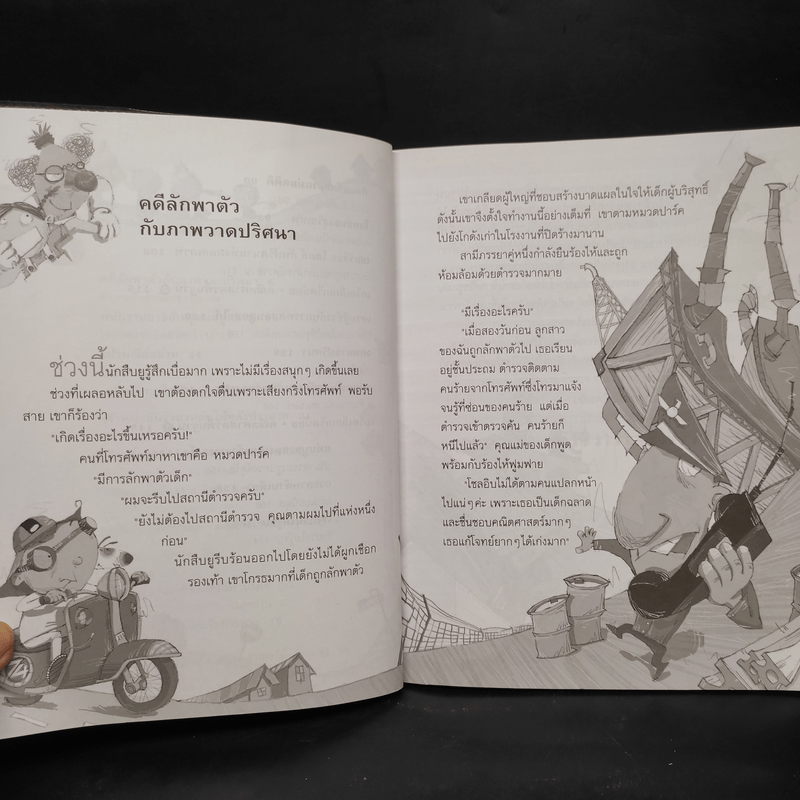 คดีลักพาตัว
กับภาพวาดปริศนา
ช่วงนี้นักสืบยูรู้สึกเบื่อมาก เพราะไม่มีเรื่องสนุกๆ เกิดขึ้นเลย
ช่วงที่เผลอหลับไป เขาต้องตกใจตื่นเพราะเสียงกริ่งโทรศัพท์ พอรับ
สาย เขาก็ร้องว่า
"เกิดเรื่องอะไรขึ้นเหรอครับ!"
คนที่โทรศัพท์มาหาเขาคือ หมวดปาร์ค
"มีการลักพาตัวเด็ก"
"ผมจะรีบไปสถานีตำรวจครับ"
"ยังไม่ต้องไปสถานีตำรวจ คุณตามผมไปที่แห่งหนึ่ง
ก่อน"
นักสืบยูรีบร้อนออกไปโดยยังไม่ได้ผูกเชือก
รองเท้า เขาโกรธมากที่เด็กถูกลักพาตัว
เขาเกลียดผู้ใหญ่ที่ชอบสร้างบาดแผลในใจให้เด็กผู้บริสุทธิ์
ดังนั้นเขาจึงตั้งใจทำงานนี้อย่างเต็มที่ เขาตามหมวดปาร์ค
ไปยังโกดังเก่าในโรงงานที่ปิดร้างมานาน
สามีภรรยาคู่หนึ่งกำลังยืนร้องไห้และถูก
ห้อมล้อมด้วยตำรวจมากมาย
"มีเรื่องอะไรครับ"
"เมื่อสองวันก่อน ลูกสาว
ของฉันถูกลักพาตัวไป เธอเรียน
อยู่ชั้นประถม ตำรวจติดตาม
คนร้ายจากโทรศัพท์ซึ่งโทรมาแจ้ง
จนรู้ที่ซ่อนของคนร้าย แต่เมื่อ
ตำรวจเข้าตรวจค้น คนร้ายก็
หนีไปแล้ว" คุณแม่ของเด็กพูด
พร้อมกับร้องไห้ฟูมฟาย
"โซลอิบไม่ได้ตามคนแปลกหน้า
ไปแน่ๆ ค่ะ เพราะเธอเป็นเด็กฉลาด
และชื่นชอบคณิตศาสตร์มากๆ
เธอแก้โจทย์ยากๆ ได้เก่งมาก"